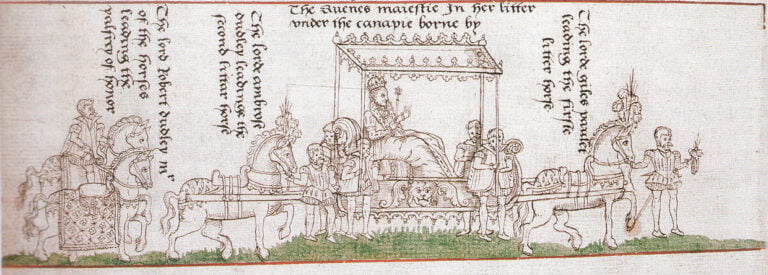 The lord Robert dudley mr
of the horses
leading the
palfrey of honor
The lorde ambrose
dudley leadinge the
second littar horse
The Quenes maiestie In her litter
vnder the canapie borne by
The lorde giles paulet
leading the firste
litter horse